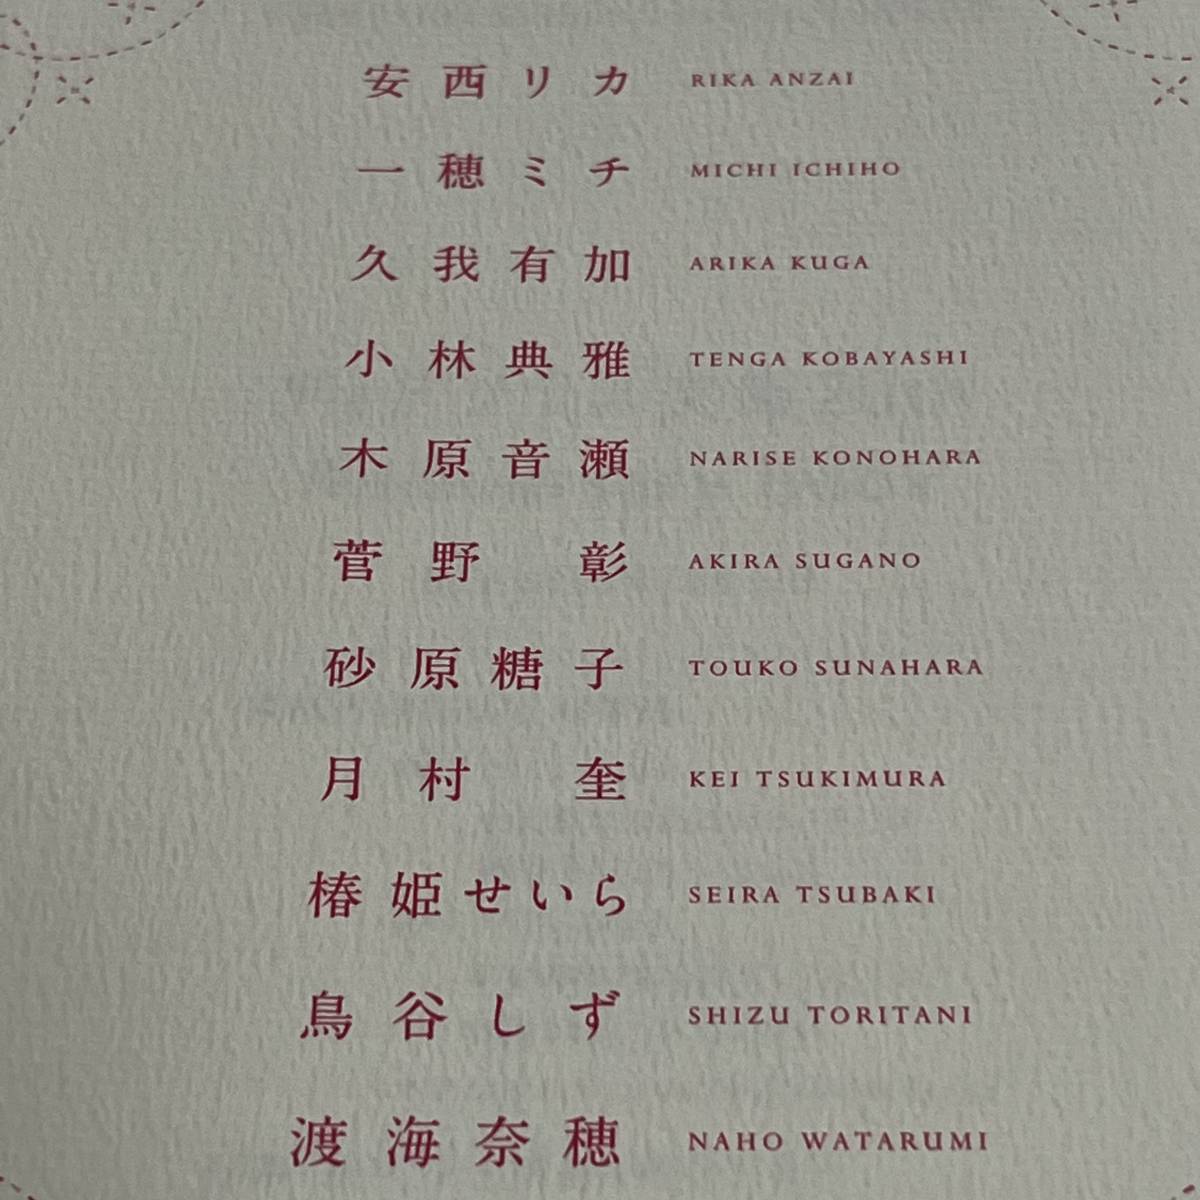 安西リカ RIKA ANZAI
一穂ミチ MICHI ICHIHO
久我有加 ARIKA KUGA
小林典雅 TENGA KOBAYASHI
木原音瀬 NARISE KONOHARA
菅野 彰 AKIRA SUGANO
砂原糖子 TOUKO SUNAHARA
月村 奎 KEI TSUKIMURA
椿姫せいら SEIRA TSUBAKI
鳥谷しず SHIZU TORITANI
渡海奈穂 NAHO WATARUMI